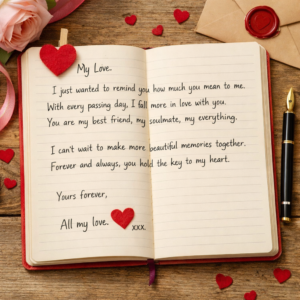 My Love.
I just wanted to remind you how much you mean to me.
With every passing day, I fall more in love with you.
You are my best friend, my soulmate, my everything.
I can't wait to make more beautiful memories together.
Forever and always, you hold the key to my heart.
Yours forever,
All my love. xxx.